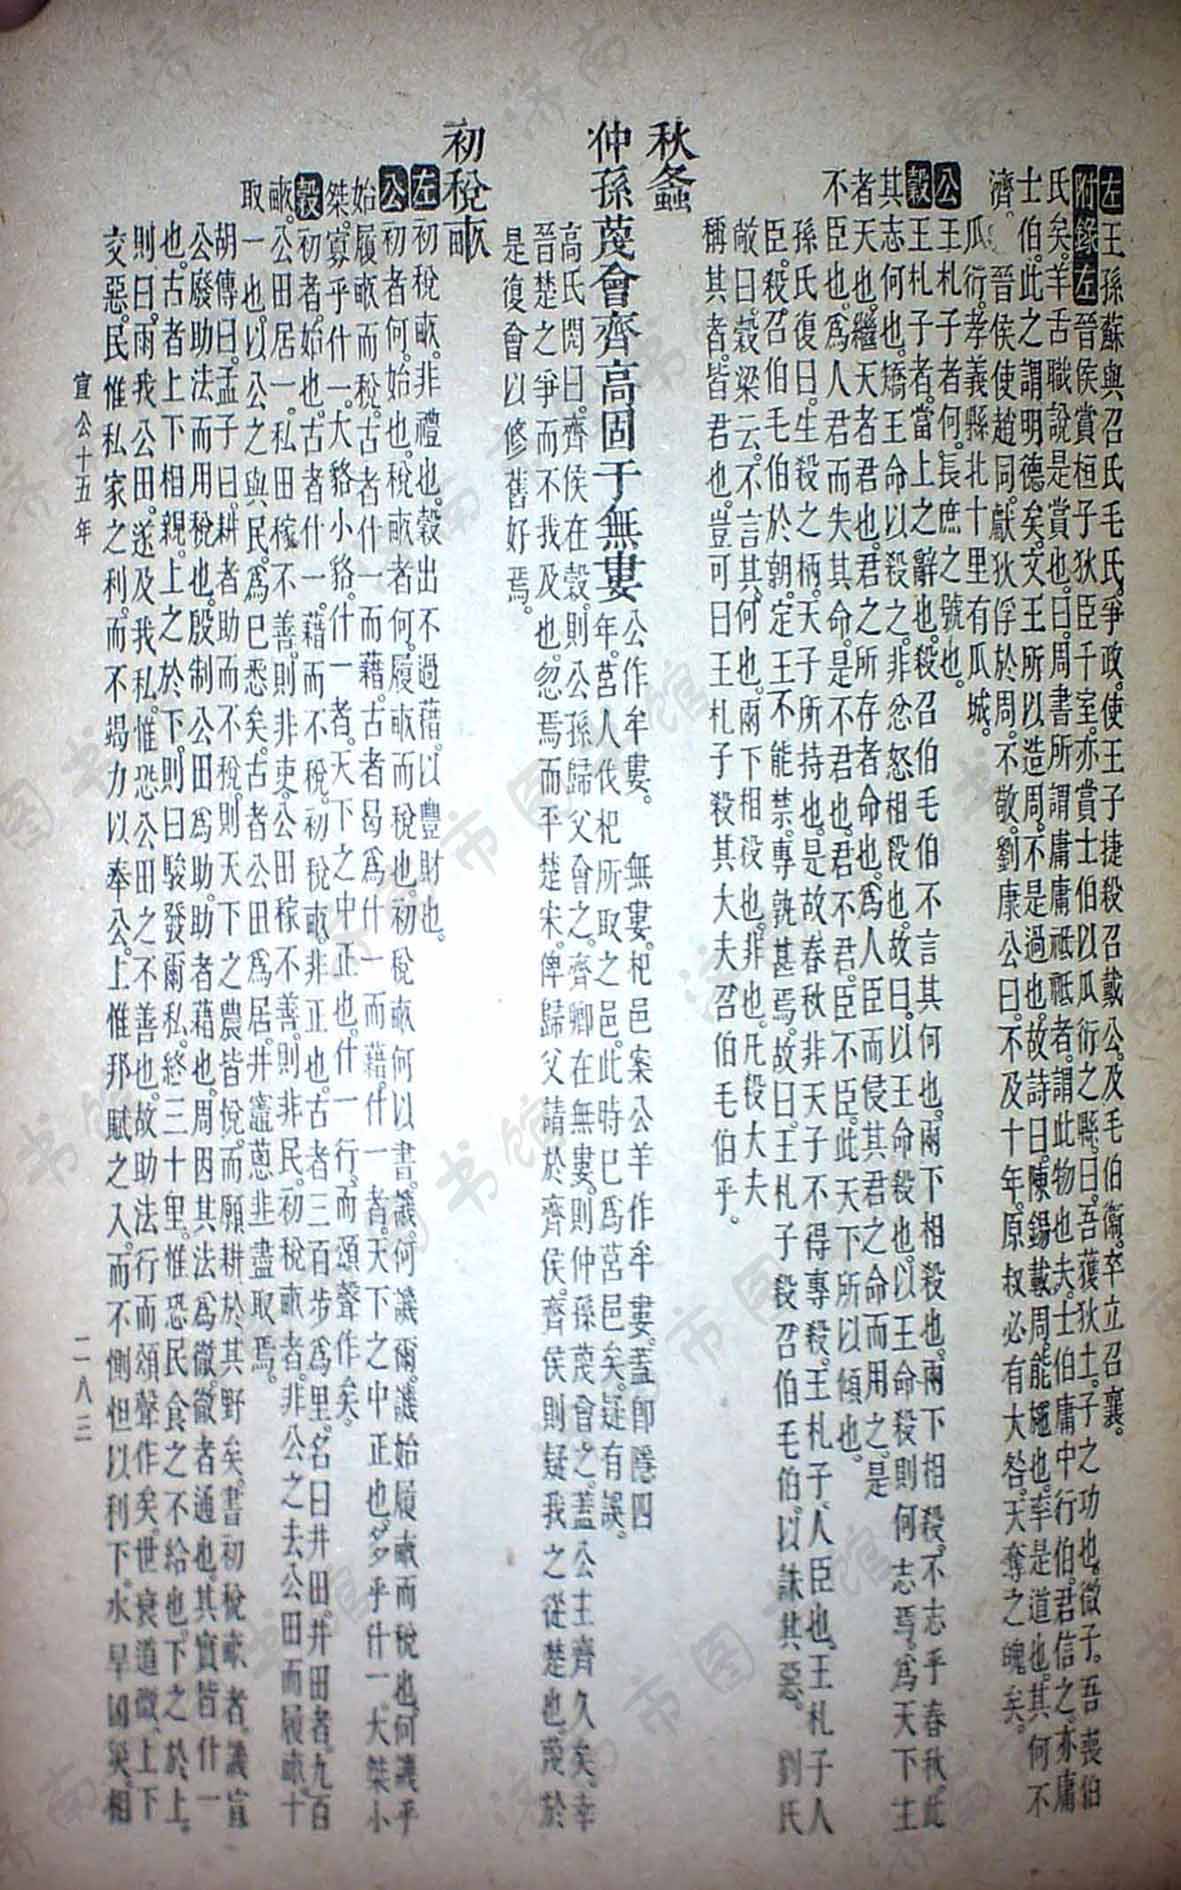 左王孫蘇與召氏毛氏爭政。使王子捷殺召戴公。及毛伯衞。卒立召襄。
附錄左晉侯賞桓子狄臣千室。亦賞士伯以瓜衍之縣。曰。吾獲狄土。子之功也。微子。吾喪伯
氏矣。羊舌職說是賞也。曰。周書所謂庸庸祗祗者。謂此物也夫。士伯庸中行伯。君信之。亦庸
士伯。此之謂明德矣。文王所以造周。不是過也。故詩曰。陳錫載周。能施也。率是道也。其何不
濟。 晉侯使趙同。獻狄俘於周。不敬。劉康公曰。不及十年。原叔必有大咎。天奪之魄矣。
瓜衍。孝義縣北十里有瓜城。
公王札子者何。長庶之號也。
穀王札子者。當上之辭也。殺召伯毛伯不言其何也。兩下相殺也。兩下相殺。不志乎春秋。此
其志何也。矯王命以殺之。非忿怒相殺也。故曰。以王命殺也。以王命殺則何志焉。爲天下主
者天也。繼天者君也。君之所存者命也。爲人臣而侵其君之命而用之。是
不臣也。爲人君而失其命。是不君也。君不君。臣不臣。此天下所以傾也。
孫氏復曰。生殺之柄。天子所持也。是故春秋非天子不得專殺。王札子。人臣也。王札子人
臣。殺召伯毛伯於朝。定王不能禁。專孰甚焉。故曰。王札子殺召伯毛伯。以誅其惡。 劉氏
敞曰。穀梁云。不言其何也。兩下相殺也。非也。凡殺大夫
稱其者。皆君也。豈可曰王札子殺其大夫召伯毛伯乎。
秋螽
仲孫蔑會齊高固于無婁公作牟婁。 無婁。杞邑案公羊作牟婁。蓋卽隱四
年。莒人伐杞所取之邑。此時已爲莒邑矣。疑有誤。
高氏閌曰。齊侯在穀。則公孫歸父會之。齊卿在無婁。則仲孫蔑會之。蓋公主齊久矣。幸
晉楚之爭而不我及也。忽焉而平楚宋。俾歸父請於齊侯。齊侯則疑我之從楚也。蔑於
是復會以修舊好焉。
初稅畝
左初稅畝。非禮也。穀出不過藉。以豐財也。
公初者何。始也。稅畝者何。履畝而稅也。初稅畝何以書。譏。何譏爾。譏始履畝而稅也。何譏乎
始履畝而稅。古者什一而藉。古者曷爲什一而藉。什一者。天下之中正也。多乎什一。大桀小
桀。寡乎什一。大貉小貉。什一者。天下之中正也。什一行。而頌聲作矣。
穀初者。始也。古者什一。藉而不稅。初稅畝。非正也。古者三百步爲里。名曰井田。井田者。九百
畝。公田居一。私田稼不善。則非吏。公田稼不善。則非民。初稅畝者。非公之去公田而履畝。十
取一也。以公之與民。爲已悉矣。古者公田爲居。井竈蔥韭盡取焉。
胡傳曰。孟子曰。耕者助而不稅。則天下之農皆悅。而願耕於其野矣。書初稅畝者。譏宣
公廢助法而用稅也。殷制公田爲助。助者藉也。周因其法爲徹。徹者通也。其實皆什一
也。古者上下相親。上之於下。則曰駿發爾私。終三十里。惟恐民食之不給也。下之於上。
則曰。雨我公田。遂及我私。惟恐公田之不善也。故助法行而頌聲作矣。世衰道微。上下
交惡。民惟私家之利。而不竭力以奉公。上惟邦賦之入。而不惻怛以利下。水旱凶災。相
宣公十五年
二八三